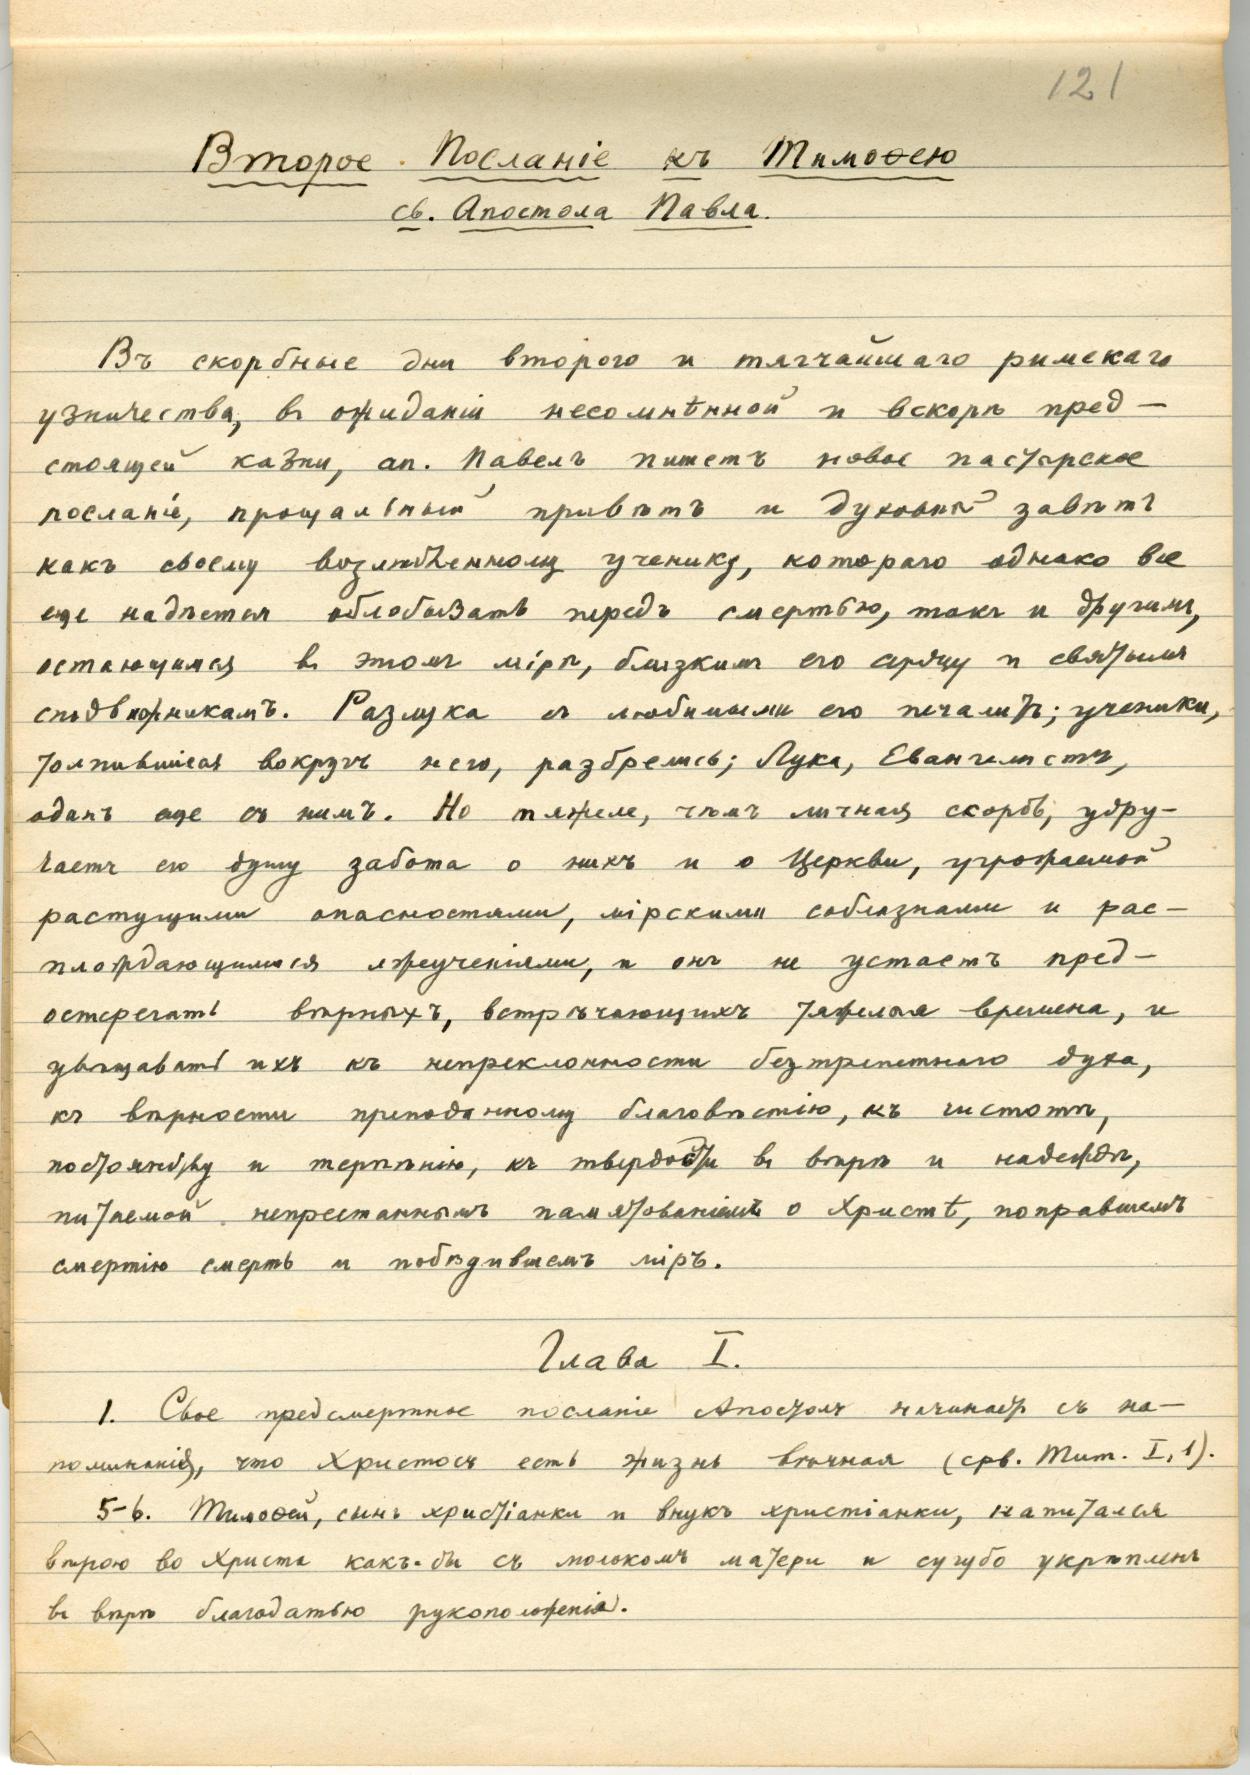 121
Второе Посланіе къ Тимоѳею
св. Апостола Павла.
Въ скорбные дни второго и тягчайшаго римскаго
узничества, въ ожиданіи несомнѣнной и вскорѣ пред-
стоящей казни, ап. Павелъ пишетъ новое пастырское
посланіе, прощальный привѣтъ и духовный завѣтъ
какъ своему возлюбленному ученику, котораго однако все
еще надѣется облобызать передъ смертью, такъ и другимъ,
остающимся въ этомъ мірѣ, близкимъ его сердцу и святымъ
сподвижникамъ. Разлука съ любимыми его печалитъ; ученики,
толпившіеся вокругъ него, разбрелись; Лука, Евангелистъ,
одинъ еще съ нимъ. Но тяжеле, чѣмъ личная скорбь, удру-
чаетъ его душу забота о нихъ и о Церкви, угрожаемой
растущими опасностями, мірскими соблазнами и рас-
плождающимися лжеученіями, и онъ не устаетъ пред-
остерегать вѣрныхъ, встрѣчающихъ тяжелыя времена, и
увѣщавать ихъ къ непреклонности безтрепетнаго духа,
къ вѣрности преподанному благовѣстію, къ чистотѣ,
постоянству и терпѣнію, къ твердости въ вѣрѣ и надеждѣ,
питаемой непрестаннымъ памятованіемъ о Христѣ, поправшемъ
смертію смерть и побѣдившемъ міръ.
Глава I.
1. Свое предсмертное посланіе Апостолъ начинаетъ съ на-
поминанія, что Христосъ есть жизнь вѣчная (срв. Тит. I, 1).
5-6. Тимоѳей, сынъ христіанки и внукъ христіанки, напитался
вѣрою во Христа какъ-бы съ молокомъ матери и сугубо укрѣпленъ
въ вѣрѣ благодатью рукоположенія.